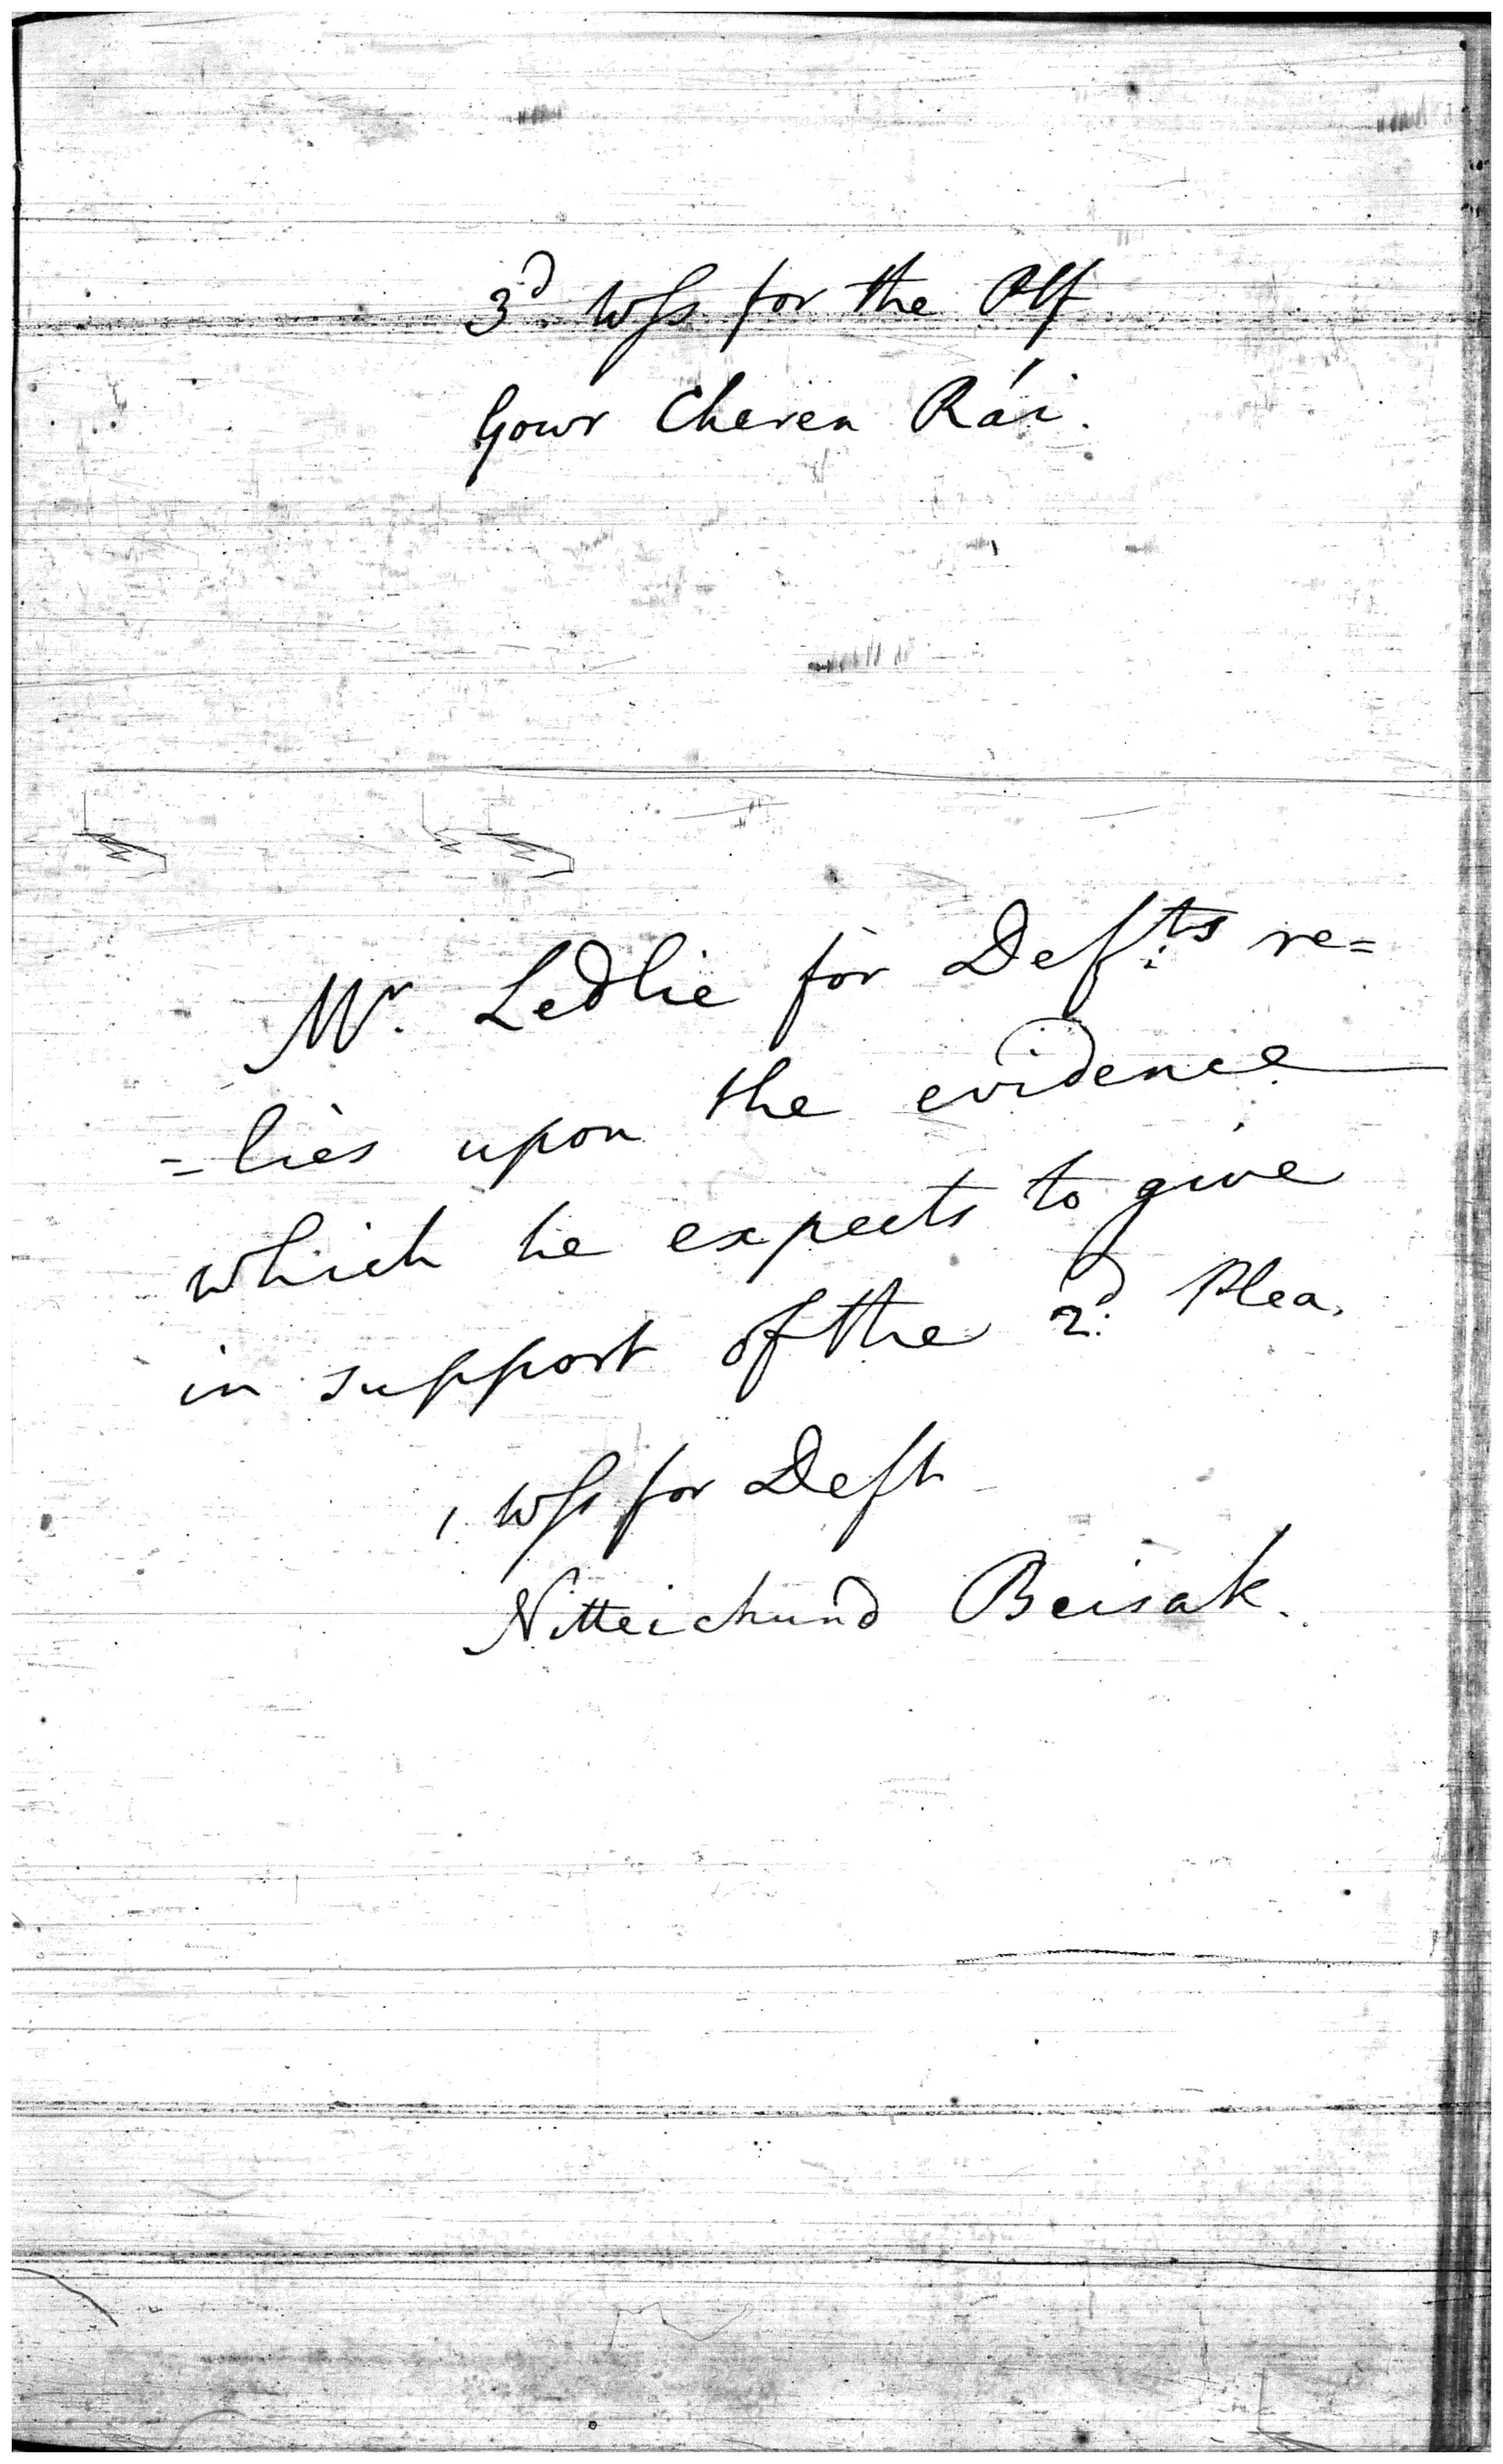 3d. Wss for the Plf
Gour Cheren Rái.
Mr. Ledlie for Defts re=
=lies upon the evidence
which he expects to give
in support of the 2d. Plea.
1 Wss for Deft
Nitteichund Beisak.